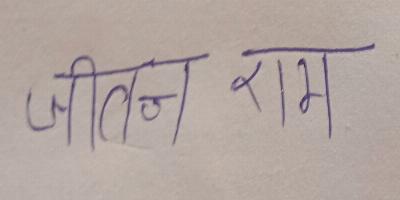 जीतन राम